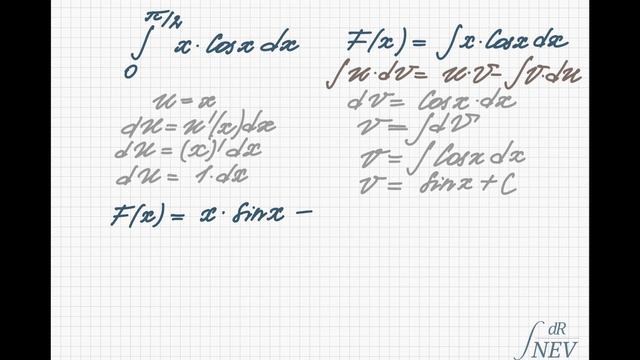 ∫₀^π/2 x · Cosx dx
F(x) = ∫x · Cosx dx
∫u · dv = u · v − ∫v · du
u = x
du = u'(x)dx
du = (x)' dx
du = 1 · dx
dv = Cosx · dx
v = ∫dv
v = ∫Cosx dx
v = Sinx + C
F(x) = x · Sinx −
∫ dR
NEV